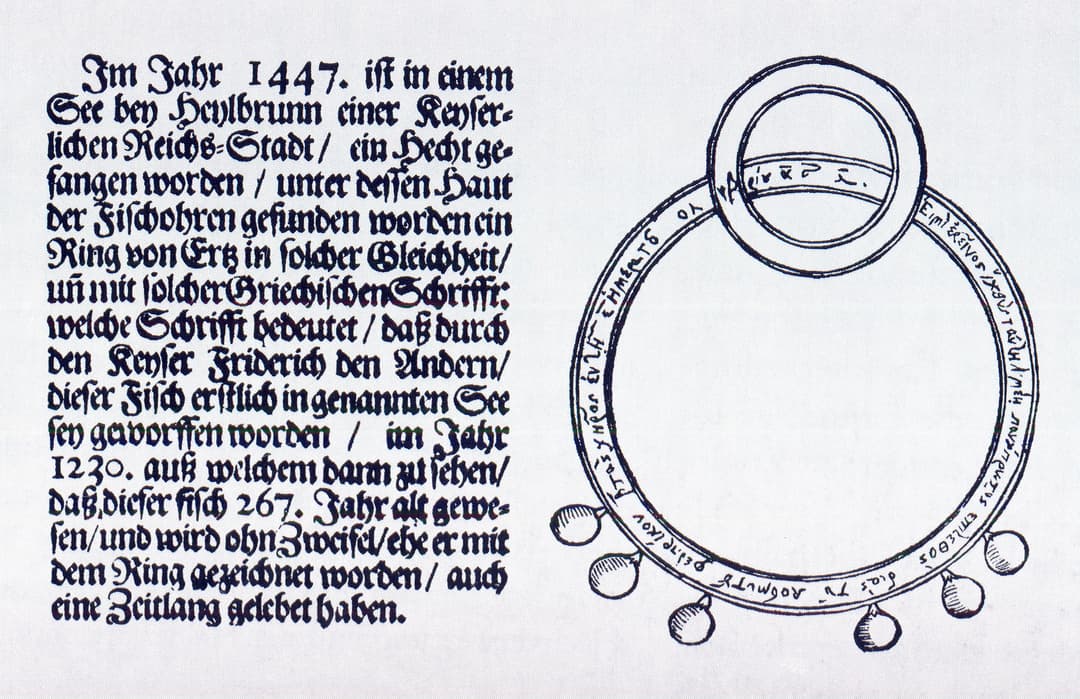 Im Jahr 1447. iſt in einem
See bey Heylbrunn einer Keyſer-
lichen Reichs-Stadt / ein Hecht ge-
fangen worden / unter deſſen Haut
der Fiſchohren gefunden worden ein
Ring von Ertz in ſolcher Gleichheit /
uñ mit ſolcher Griechiſchen Schrifft:
welche Schrifft bedeutet / daß durch
den Keyſer Friderich den Andern /
dieſer Fiſch erſtlich in genannten See
ſey geworffen worden / im Jahr
1230. auß welchem dann zu ſehen /
daß dieſer fiſch 267. Jahr alt gewe-
ſen / und wird ohn Zweifel / ehe er mit
dem Ring gezeichnet worden / auch
eine Zeitlang gelebet haben.